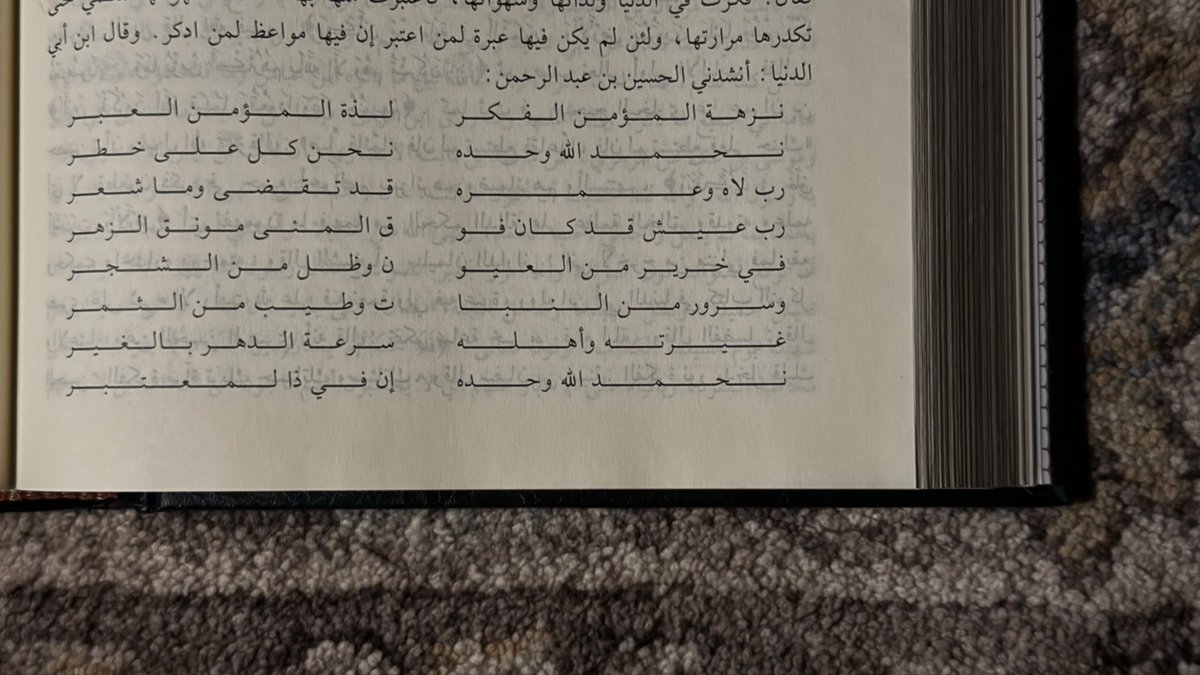 فكرت في الدنيا ولذاتها وشهواتها، فاعتبرت منها بها
تكدرها مرارتها، ولئن لم يكن فيها عبرة لمن اعتبر إن فيها مواعظ لمن ادكر. وقال ابن أبي
الدنيا: أنشدني الحسين بن عبد الرحمن:
نزهة المؤمن الفكر لذة المؤمن العبر
نحمد الله وحده نحن كل على خطر
رب لاه وعمره قد تقضى وما شعر
رب عيش قد كان فو ق المنى مونق الزهر
في خرير من العيو ن وظل من الشجر
وسرور من النبا ت وطيب من الثمر
غيرته وأهله سرعة الدهر بالغير
نحمد الله وحده إن في ذا لمعتبر